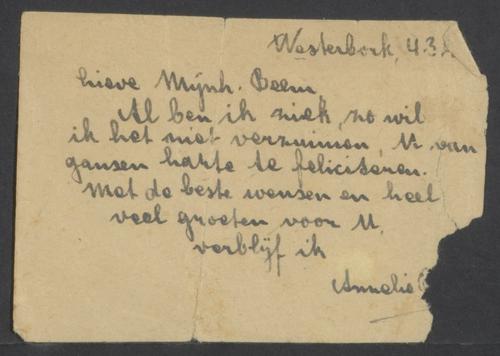 Westerbork, 4.3.
Lieve Mijnh. Beem,
Al ben ik ziek, zo wil
ik het niet verzuimen, U van
gansen harte te feliciteren.
Met de beste wensen en heel
veel groeten voor U,
verblijf ik
Annelie